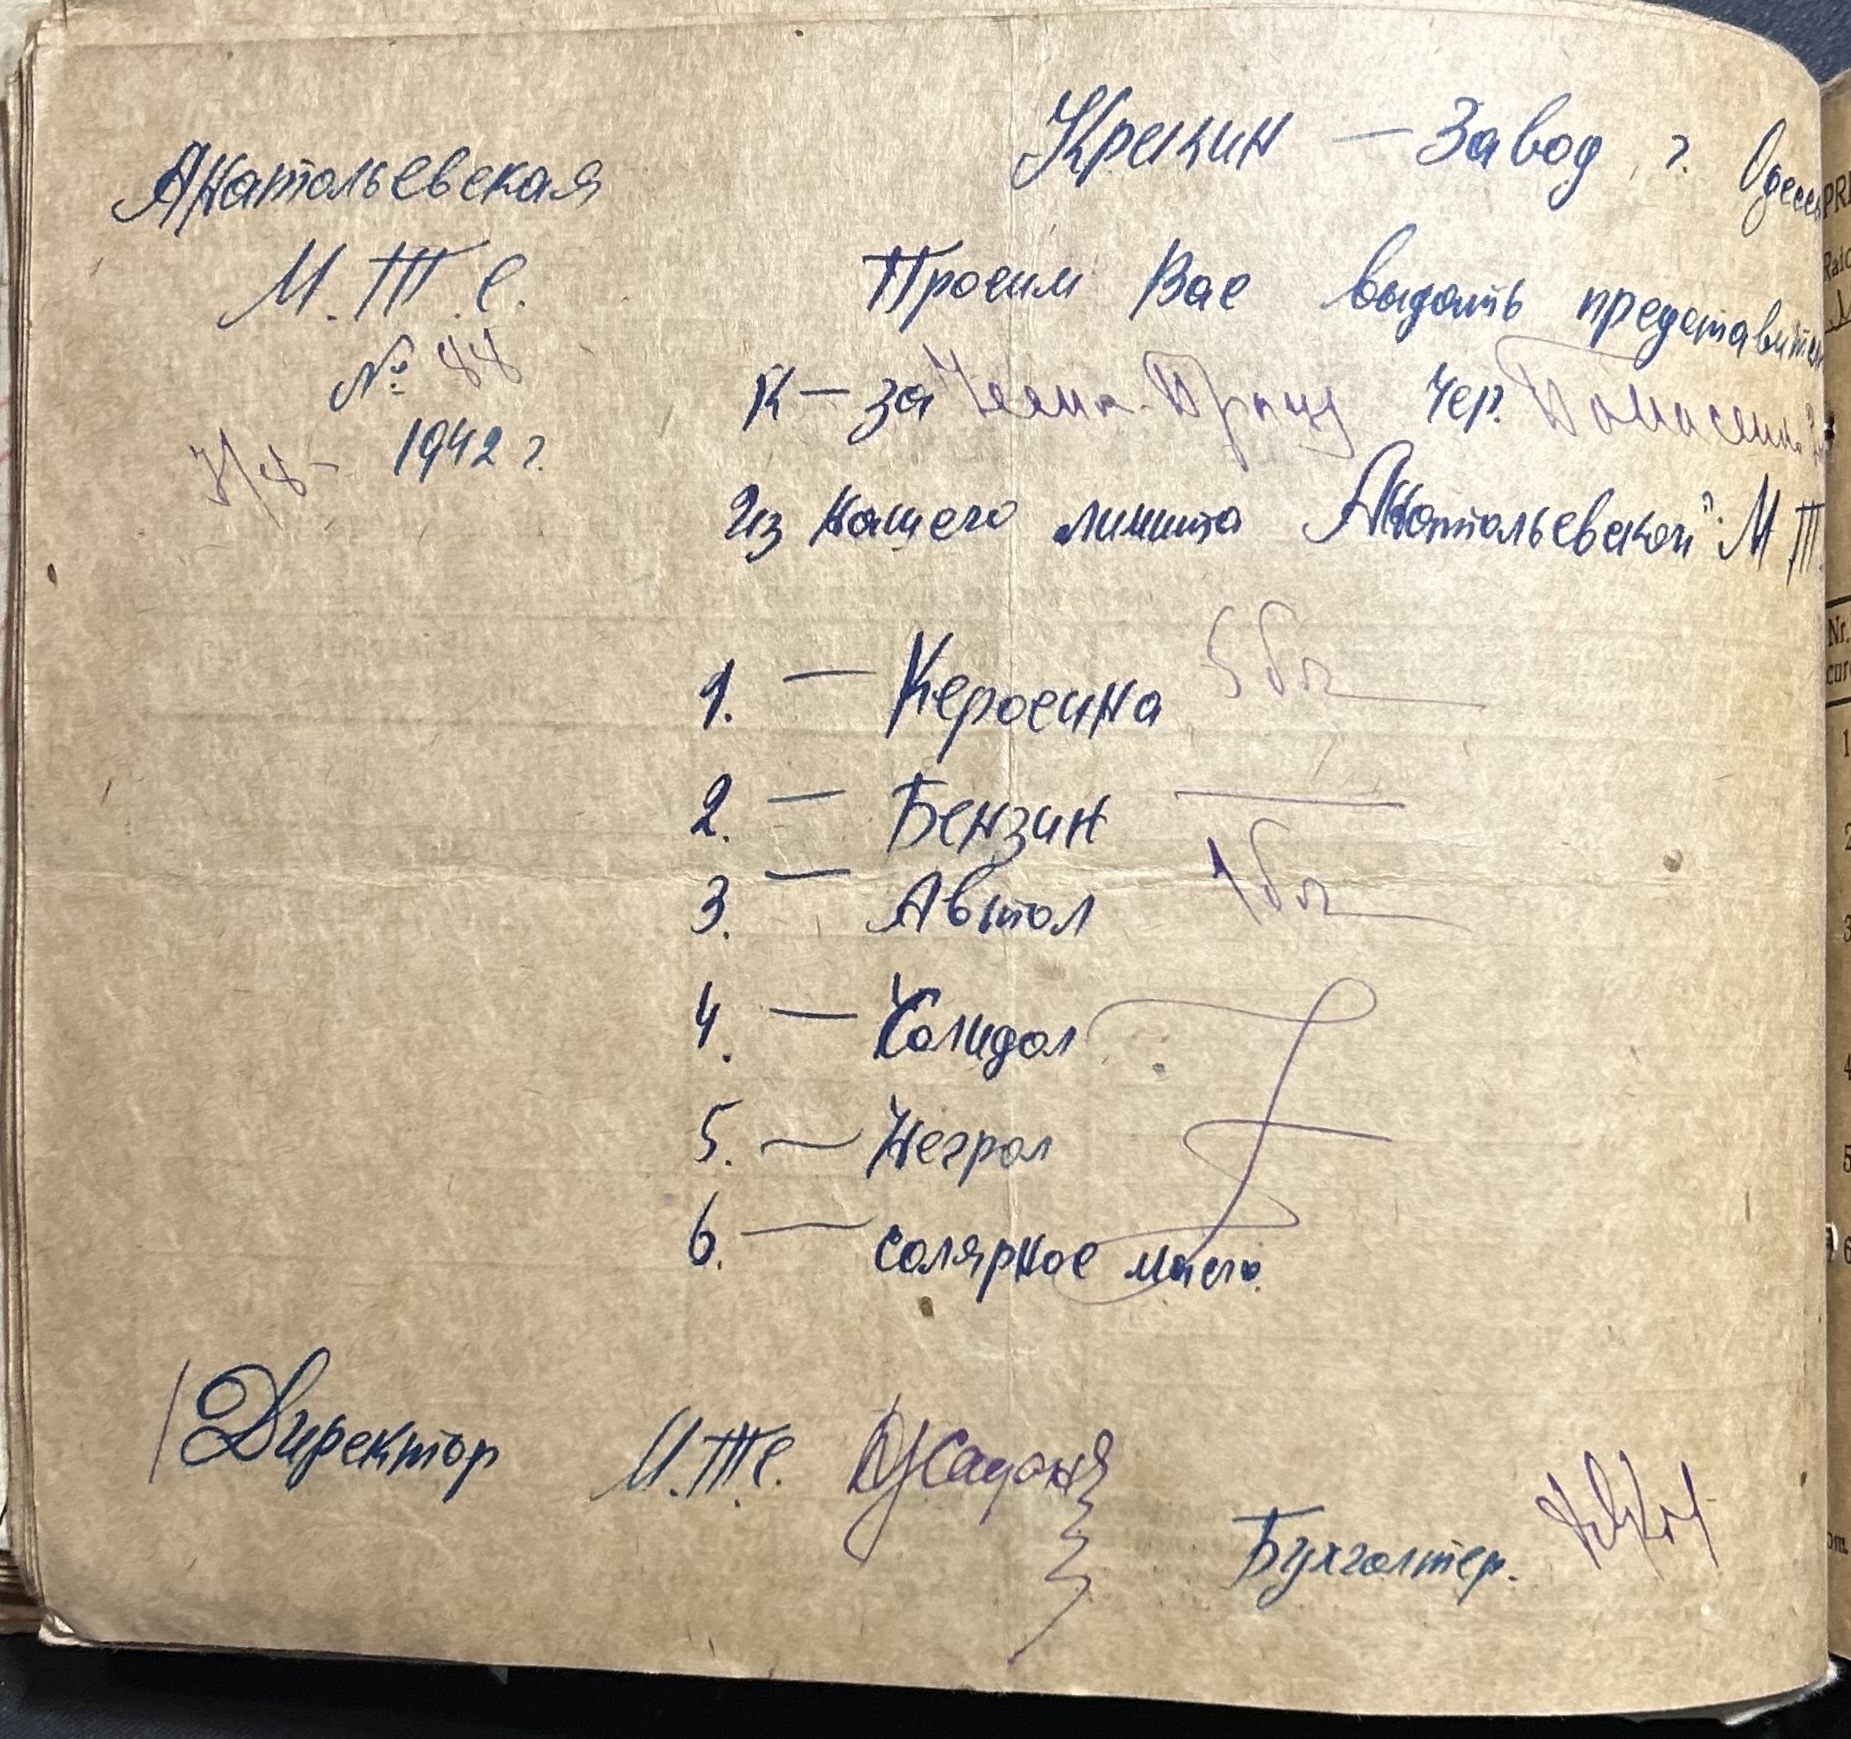 Анатольевская
М.Т.С.
№ 88
7/8- 1942 г.
Крекин — Завод, г. Одесс
Просим Вас выдать представител
К-за чер.
Из нашего лимита Анатольевской" М Т.
1. — Керосина 5 боч
2. — Бензин —
3. — Автол 1 боч
4. — Солидол
5. — Негрол
6. — солярное масло.
Директор М.Т.С.
Бухгалтер.
PRE
Raio
Nr.
curen
1
2
3
4
5
6
om.